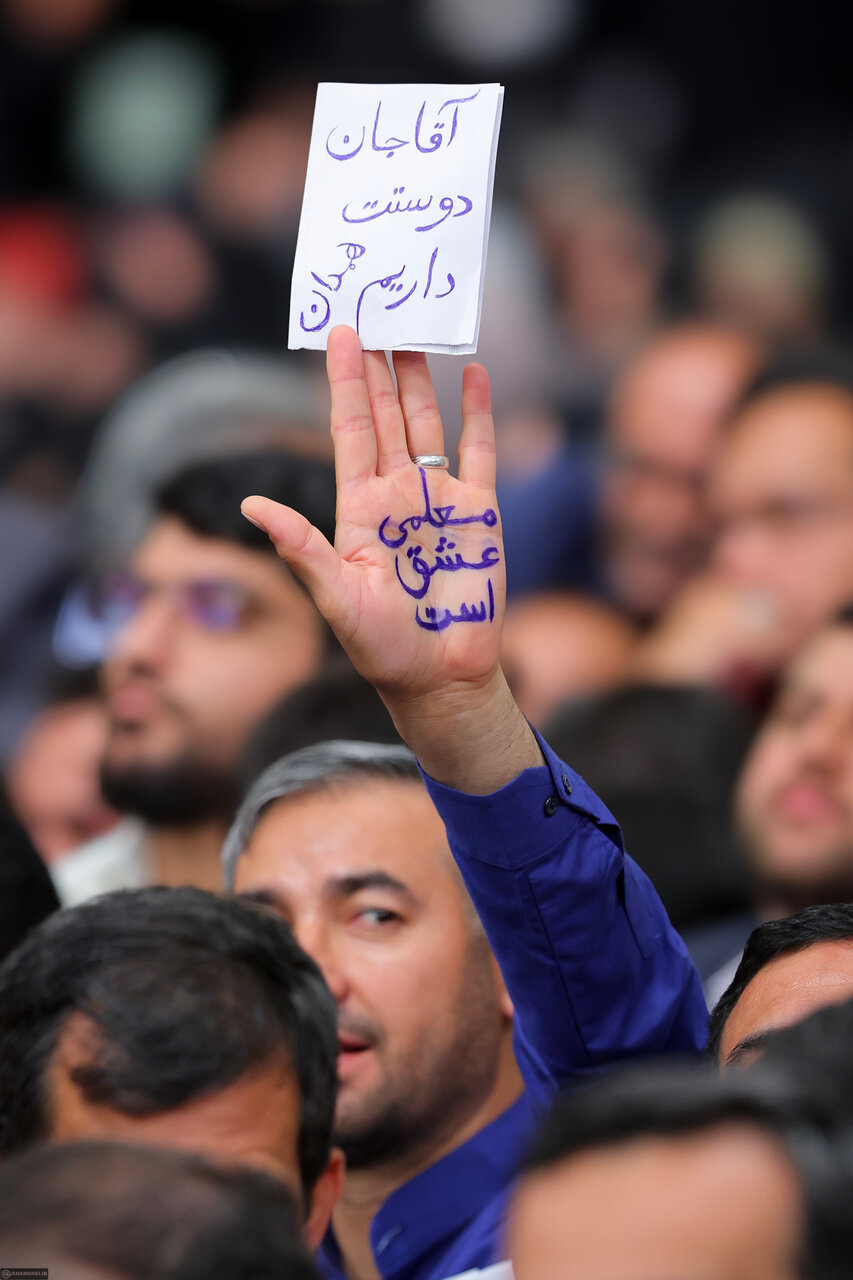 آقاجان
دوستت
داریم همدان
معلمی
عشق
است
KHAMENEI.IR